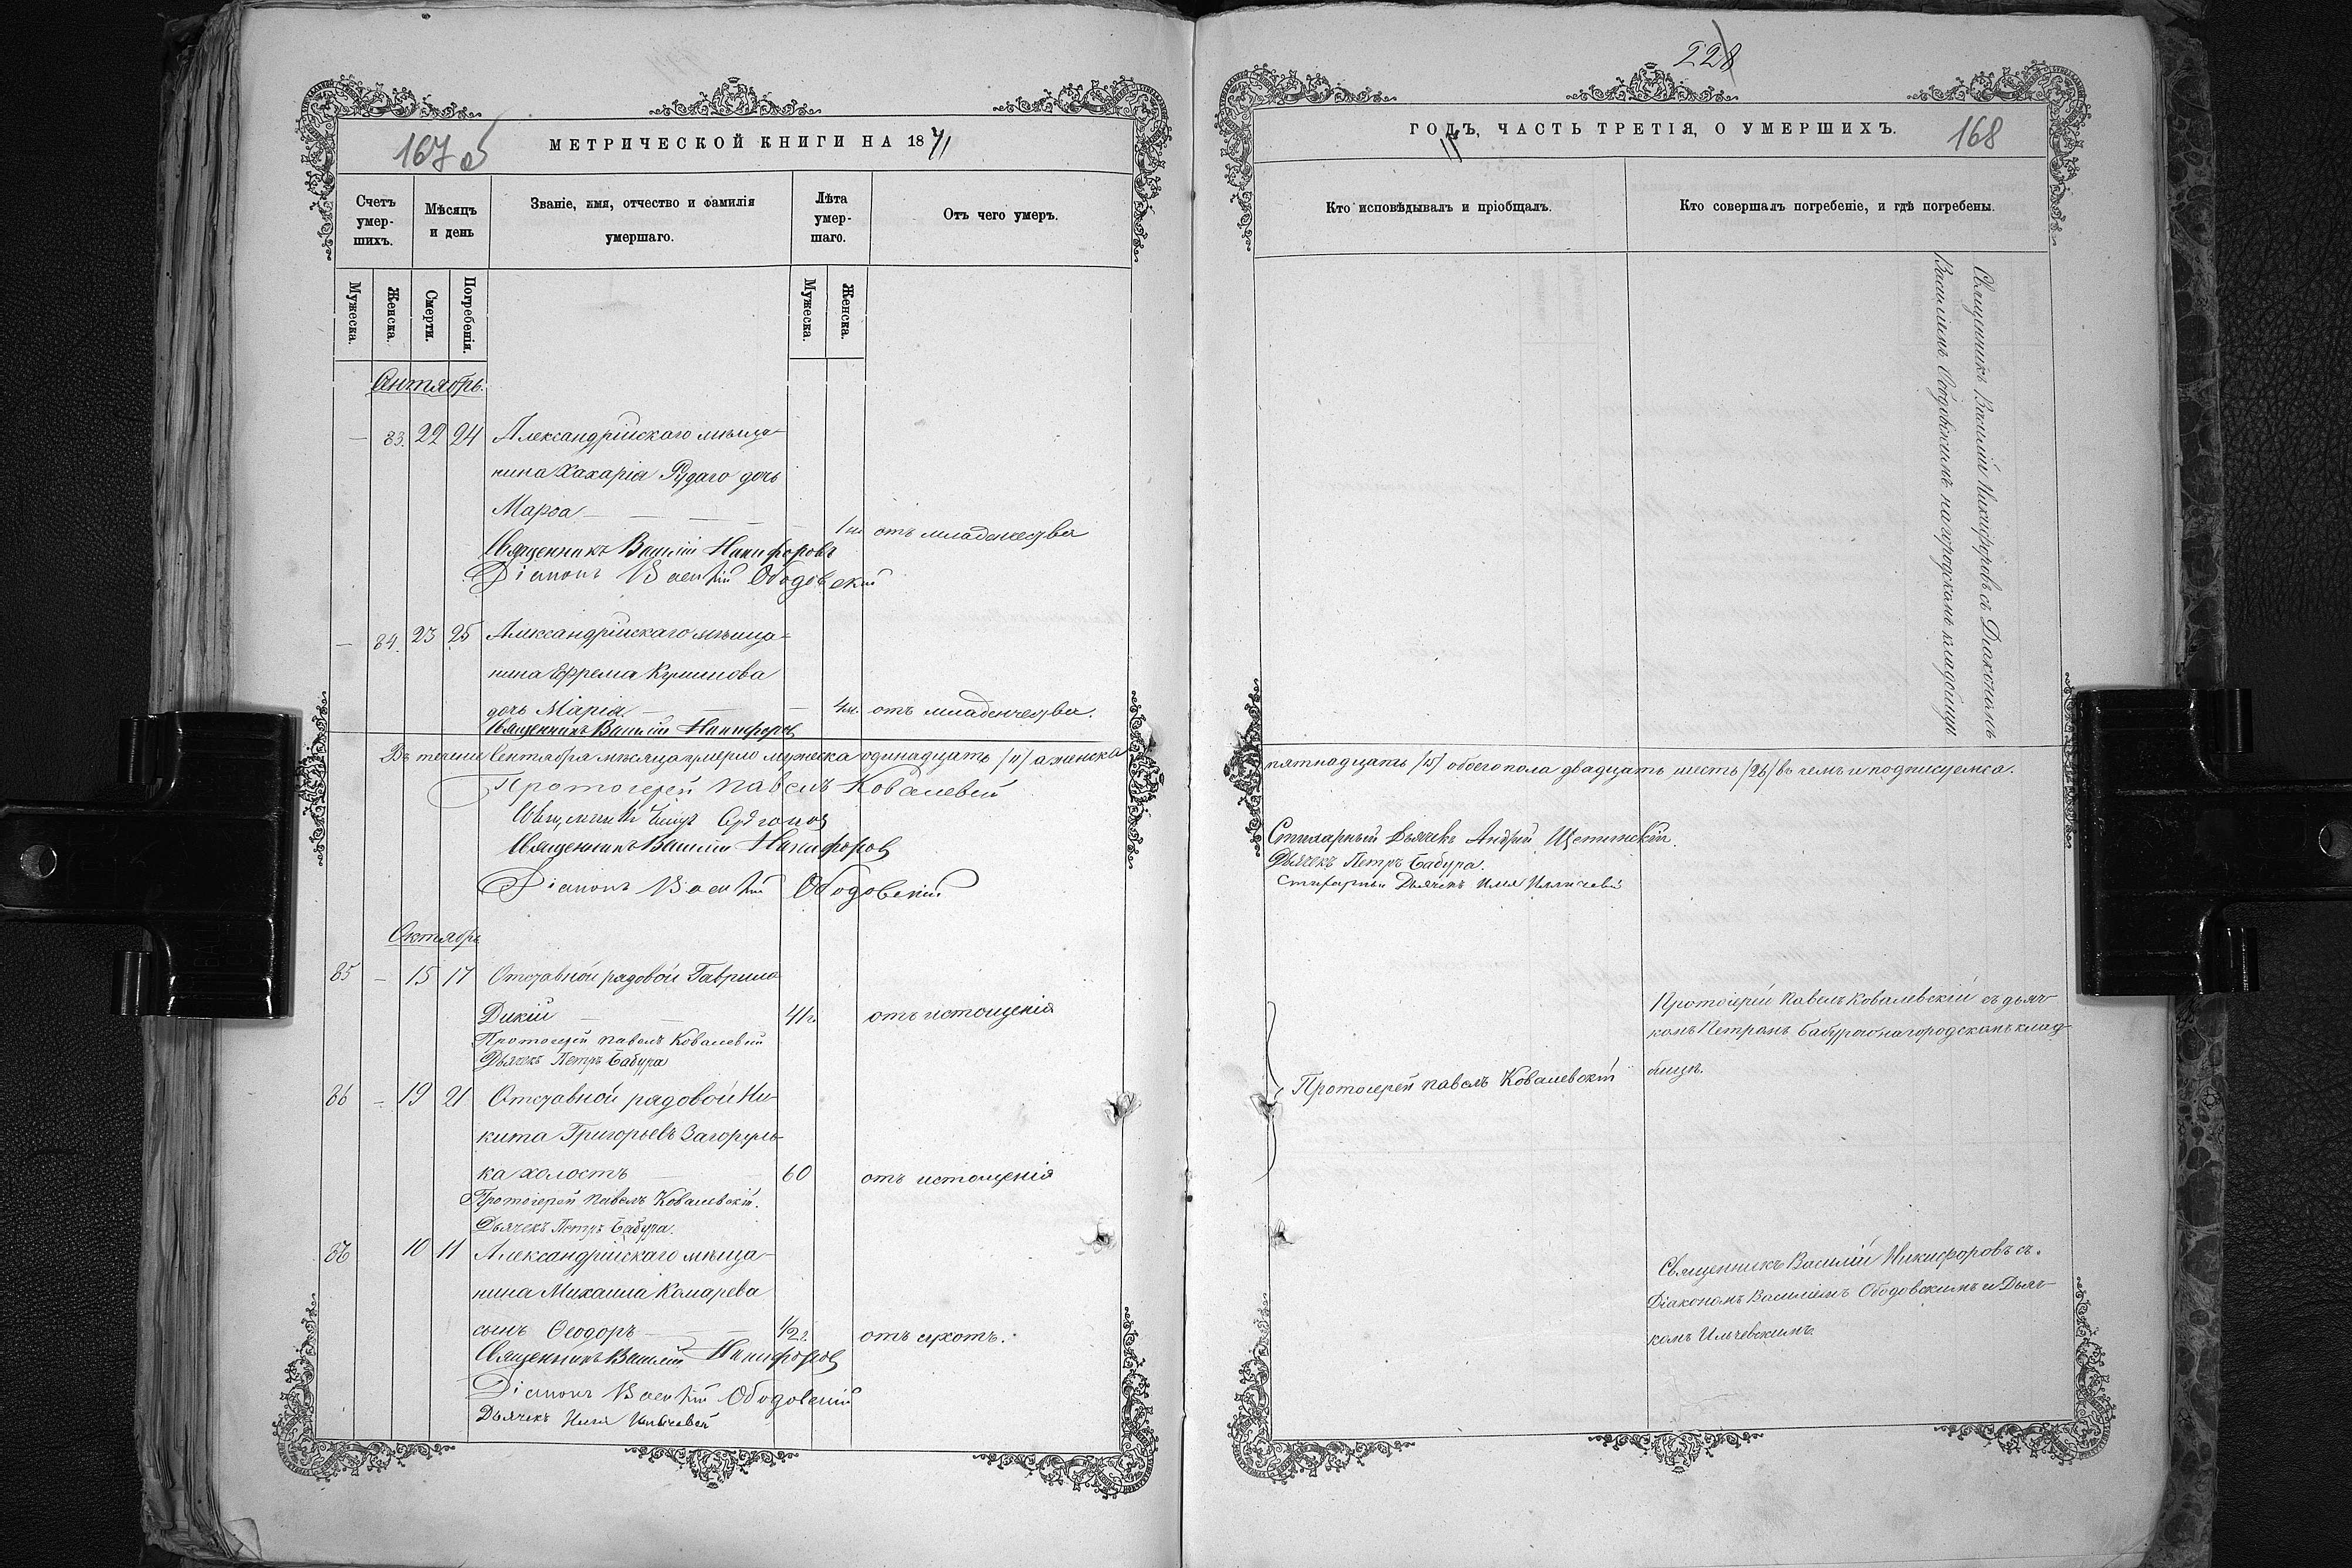 228
167 об
МЕТРИЧЕСКОЙ КНИГИ НА 1871
ГОДЪ, ЧАСТЬ ТРЕТІЯ, О УМЕРШИХЪ.
168
Счетъ умер-шихъ.
Мѣсяцъ и день
Званіе, имя, отчество и фамилія умершаго.
Лѣта умер-шаго.
Отъ чего умеръ.
Кто исповѣдывалъ и пріобщалъ.
Кто совершалъ погребеніе, и гдѣ погребены.
Мужеска.
Женска.
Смерти.
Погребенія.
Мужеска.
Женска.
Сентябрь.
— 83. 22 24 Александрійскаго мѣща-
нина Захарія Рудаго дочь
Марѳа — 1 м. отъ младенчества
Священникъ Василій Никифоровъ
Діаконъ Василій Ободовскій
— 84. 23 25 Александрійскаго мѣща-
нина Ефрема
дочь Марія. — 4 м. отъ младенчества.
Священникъ Василій Никифоровъ
Священникъ Василій Никифоровъ съ Діакономъ
Василіемъ Ободовскимъ на городскомъ кладбищѣ
Въ теченіи Сентября мѣсяца умерло мужеска одинадцать /11/ а женска
пятнадцать /15/ обоего пола двадцать шесть /26/ въ чемъ и подписуемся.
Протоіерей Павелъ Ковалевскій
Священникъ
Священникъ Василій Никифоровъ
Діаконъ Василій Ободовскій
Стихарный Дьячекъ Андрей Щетинскій.
Дьячекъ Петръ Бабура.
Стихарный Дьячекъ Илія Ильичевскій
Октябрь
85 — 15 17 Отставной рядовой Гаврило
Дикій — 41 г. отъ истощенія
Протоіерей Павелъ Ковалевскій
Дьячекъ Петръ Бабура
86 — 19 21 Отставной рядовой Ни-
кита Григорьевъ Загоруль-
ка холостъ — 60 отъ истощенія
Протоіерей Павелъ Ковалевскій.
Дьячекъ Петръ Бабура.
Протоіерей Павелъ Ковалевскій
Протоіерей Павелъ Ковалевскій съ дьяч-
комъ Петромъ Бабурою на городскомъ клад-
бищѣ.
10 11 Александрійскаго мѣща-
нина Михаила Комарева
сынъ Ѳеодоръ — 1/2 г. отъ сухотъ.
Священникъ Василій Никифоровъ
Діаконъ Василій Ободовскій
Дьячекъ Илія Ильичевскій
Священникъ Василій Никифоровъ съ
Діакономъ Василіемъ Ободовскимъ и Дьяч-
комъ Ильчевскимъ.